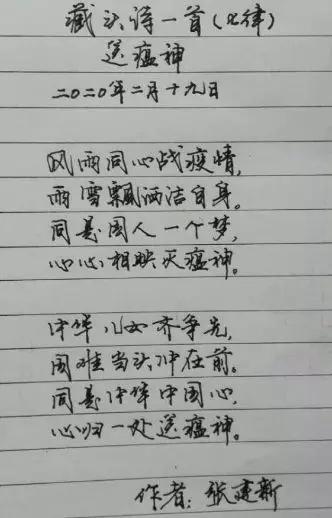 藏头诗一首(七律)
送瘟神
二〇二〇年二月十九日
风雨同心战疫情,
雨雪飘洒洁自身。
同是国人一个梦,
心心相映灭瘟神。
中华儿女齐争先,
国难当头冲在前。
同是中华中国心,
心归一处送瘟神。
作者:张建新